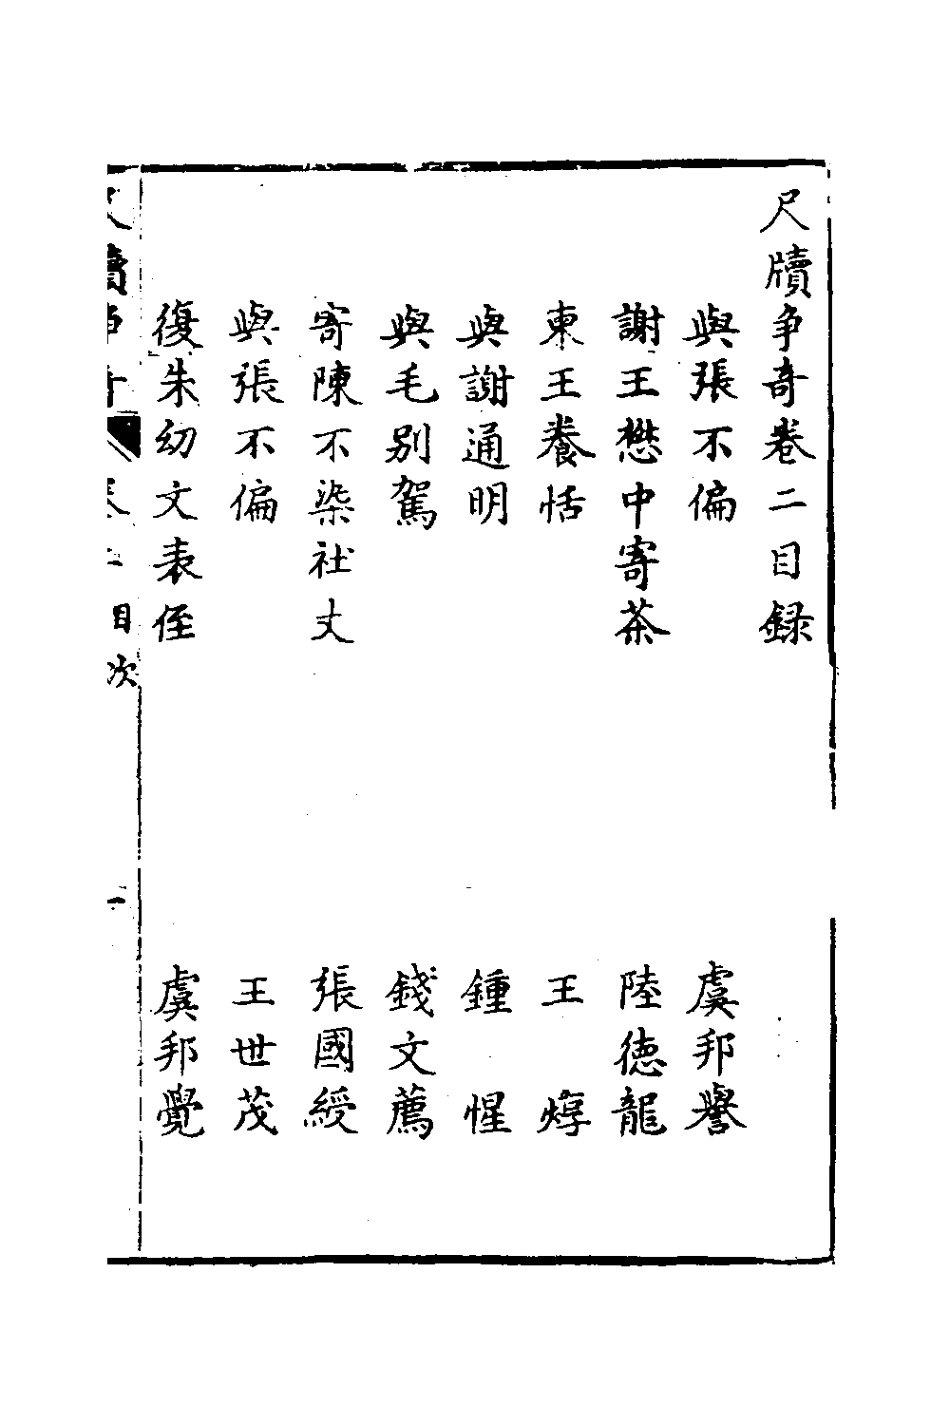 尺牘争奇巻二目録
與張不偏 虞邦譽
謝王懋中寄茶 陸德龍
東王養恬 王焞
與謝通明 鍾惺
與毛別駕 錢文薦
寄陳不染社丈 張國綬
與張不偏 王世茂
復朱幼文表侄 虞邦覺
目次